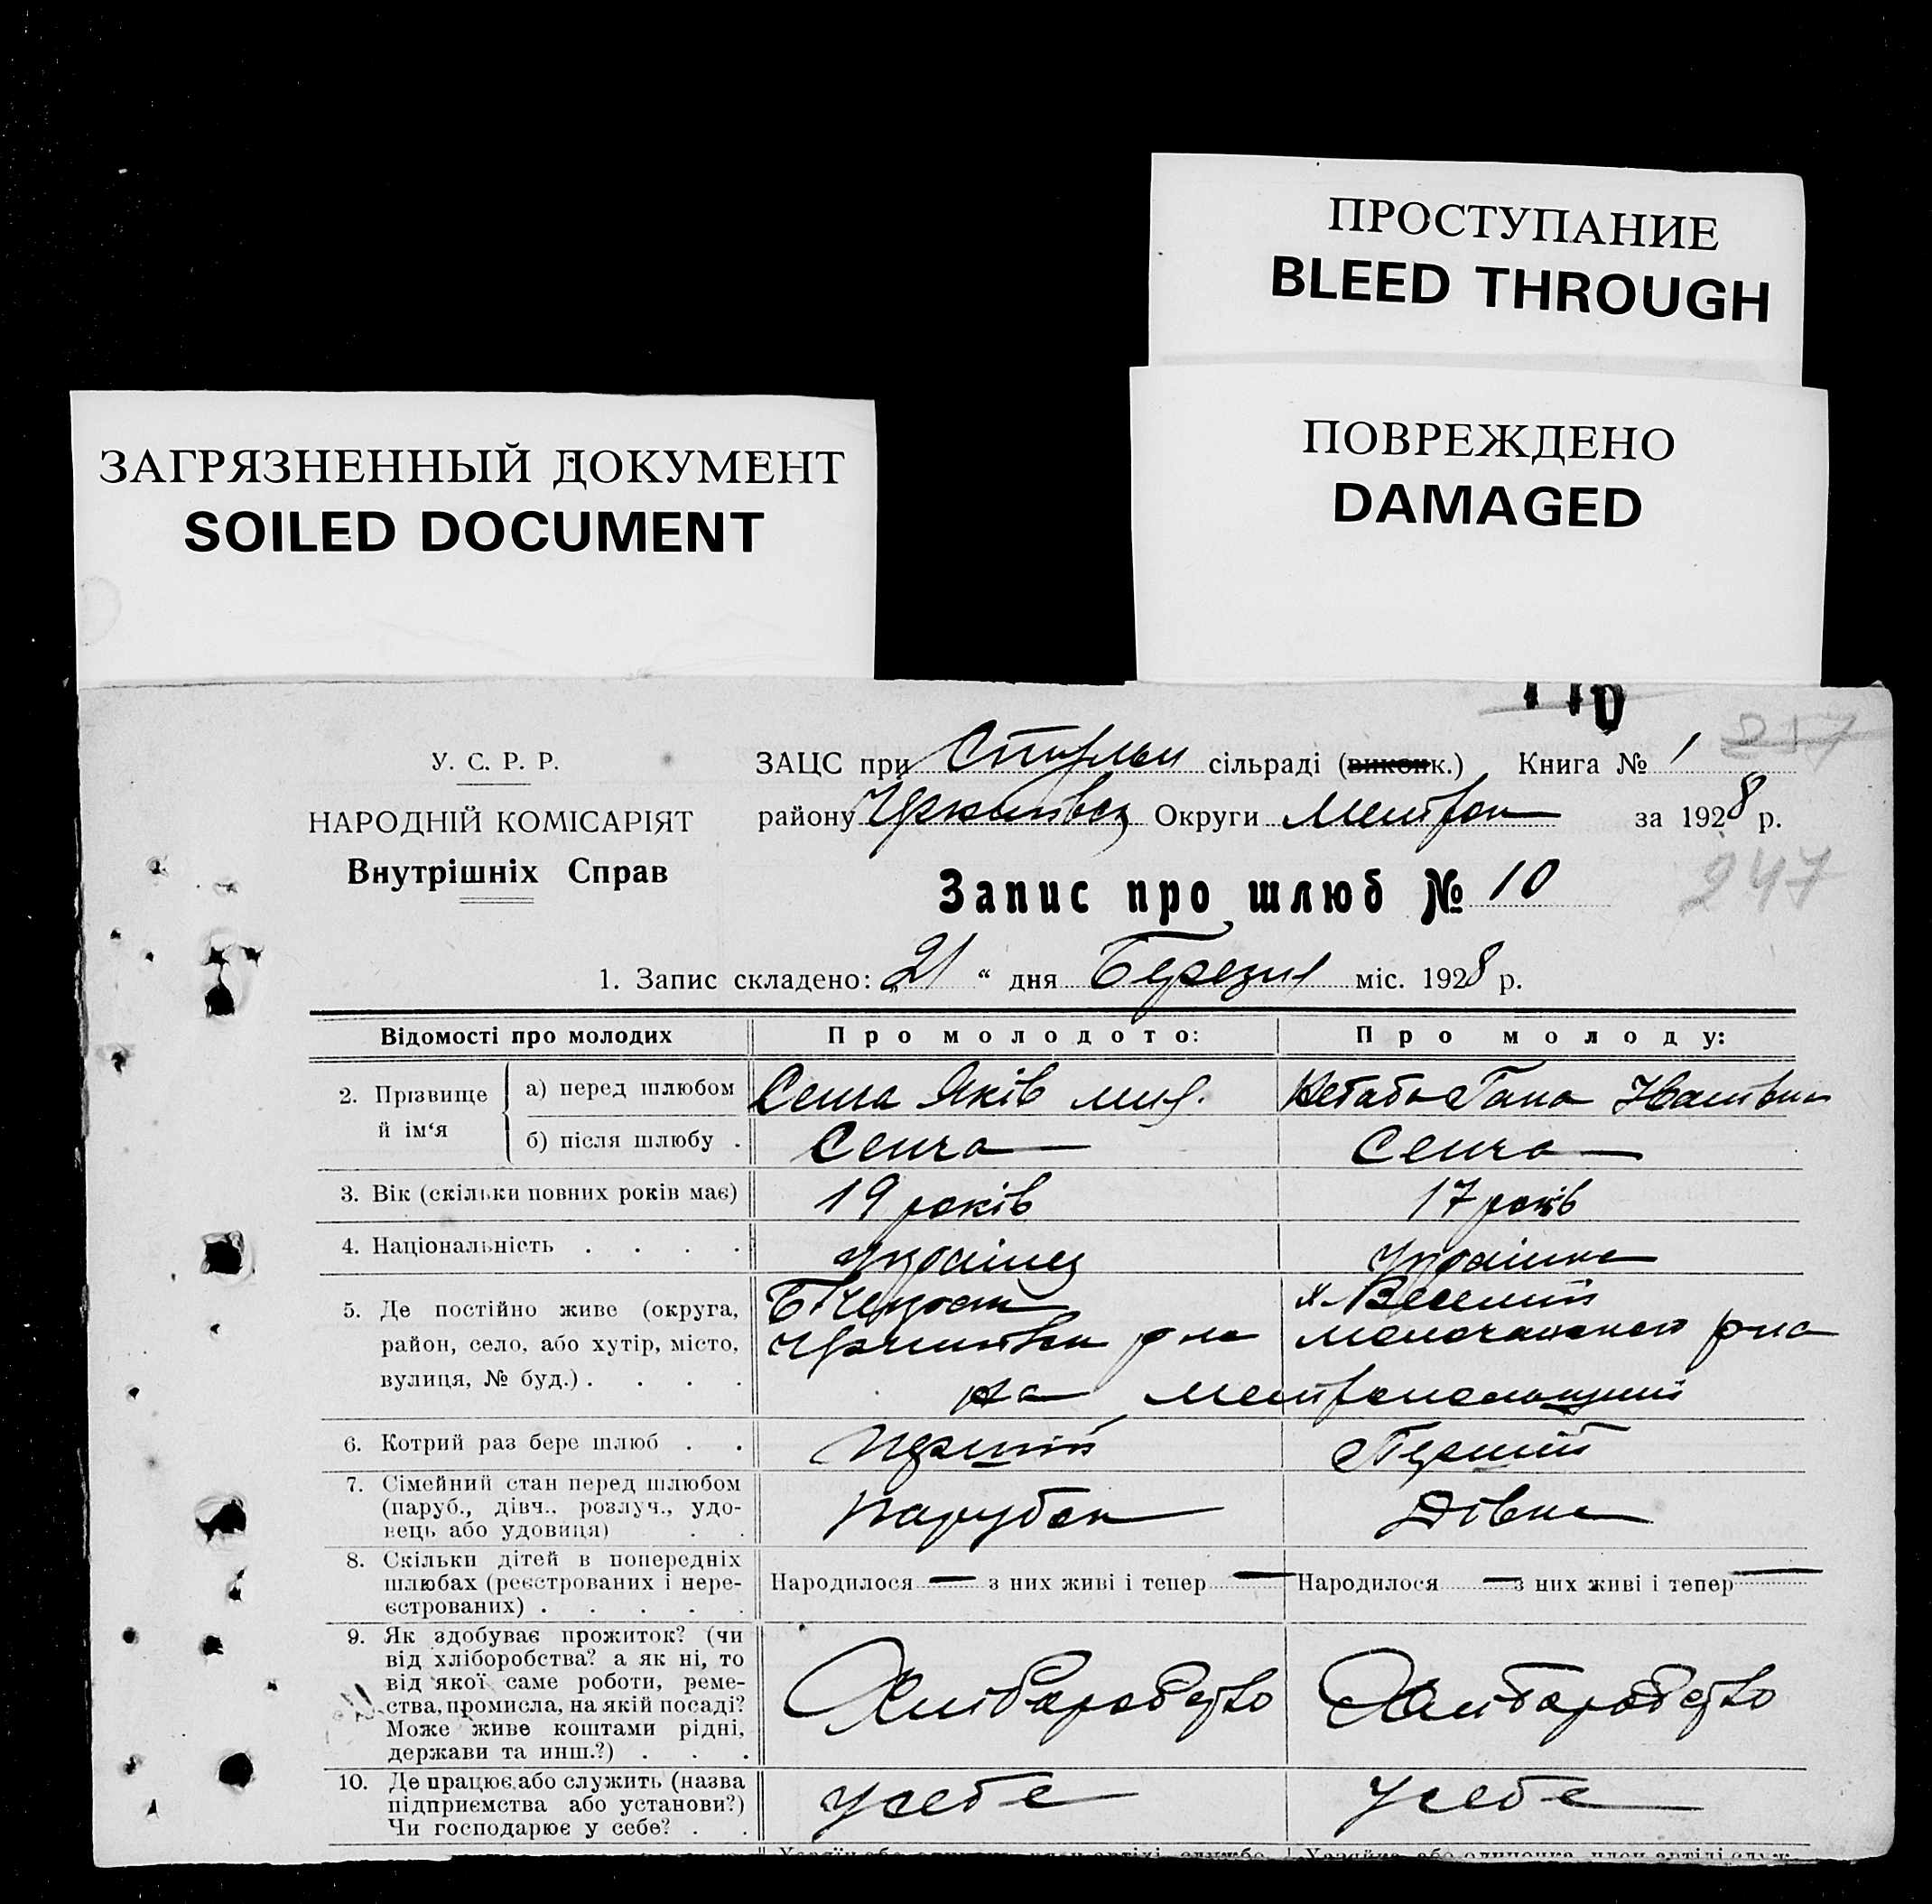 ПРОСТУПАНИЕ
BLEED THROUGH
ПОВРЕЖДЕНО
DAMAGED
ЗАГРЯЗНЕННЫЙ ДОКУМЕНТ
SOILED DOCUMENT
У. С. Р. Р.
НАРОДНІЙ КОМІСАРІЯТ
Внутрішніх Справ
ЗАЦС при сільраді (виконк.) Книга № 1
району Округи за 1928 р.
247
Запис про шлюб № 10
1. Запис складено: „21“ дня Березня міс. 1928 р.
Відомості про молодих Про молодого: Про молоду:
2. Прізвище й ім‘я
а) перед шлюбом Сенча Яків Гана Іванівна
б) після шлюбу . Сенча Сенча
3. Вік (скільки повних років має) 19 років 17 років
4. Національність . . . . Українец Українка
5. Де постійно живе (округа,
район, село, або хутір, місто,
вулиця, № буд.) . . . .
х. Веселий
р-на
6. Котрий раз бере шлюб . . Перший Перший
7. Сімейний стан перед шлюбом
(паруб., дівч., розлуч., удо-
вець або удовиця) . . Парубок Дівка
8. Скільки дітей в попередніх
шлюбах (реєстрованих і нере-
єстрованих) . . . . .
Народилося — з них живі і тепер — Народилося — з них живі і тепер —
9. Як здобуває прожиток? (чи
від хліборобства? а як ні, то
від якої саме роботи, реме-
ства, промисла, на якій посаді?
Може живе коштами рідні,
держави та инш.?) . . .
Хлиборобство Хлиборобство
10. Де працює або служить (назва
підприємства або установи?)
Чи господарює у себе? . .
у себе у себе